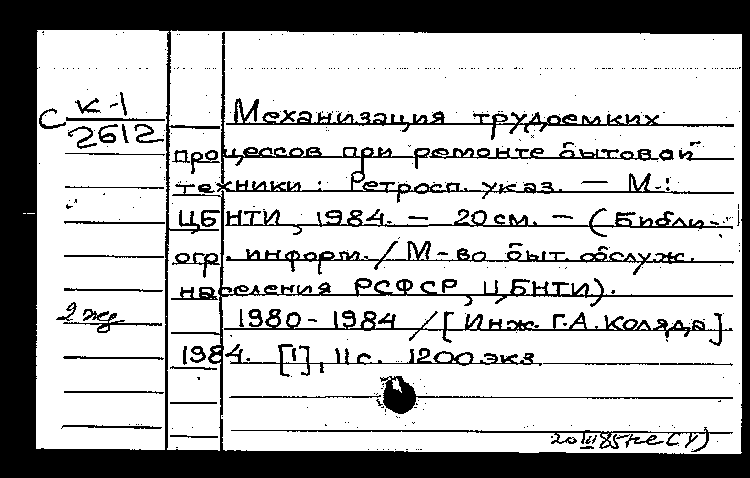 С К-1
2612
Механизация трудоемких
процессов при ремонте бытовой
техники: Ретросп. указ. — М.:
ЦБНТИ, 1984. — 20 см. — (Библи-
огр. информ. / М-во быт. обслуж.
населения РСФСР, ЦБНТИ).
2 экз
1980-1984 / [Инж. Г.А. Коляда].
1984. [1], 11 с. 1200 экз.
20 III 85